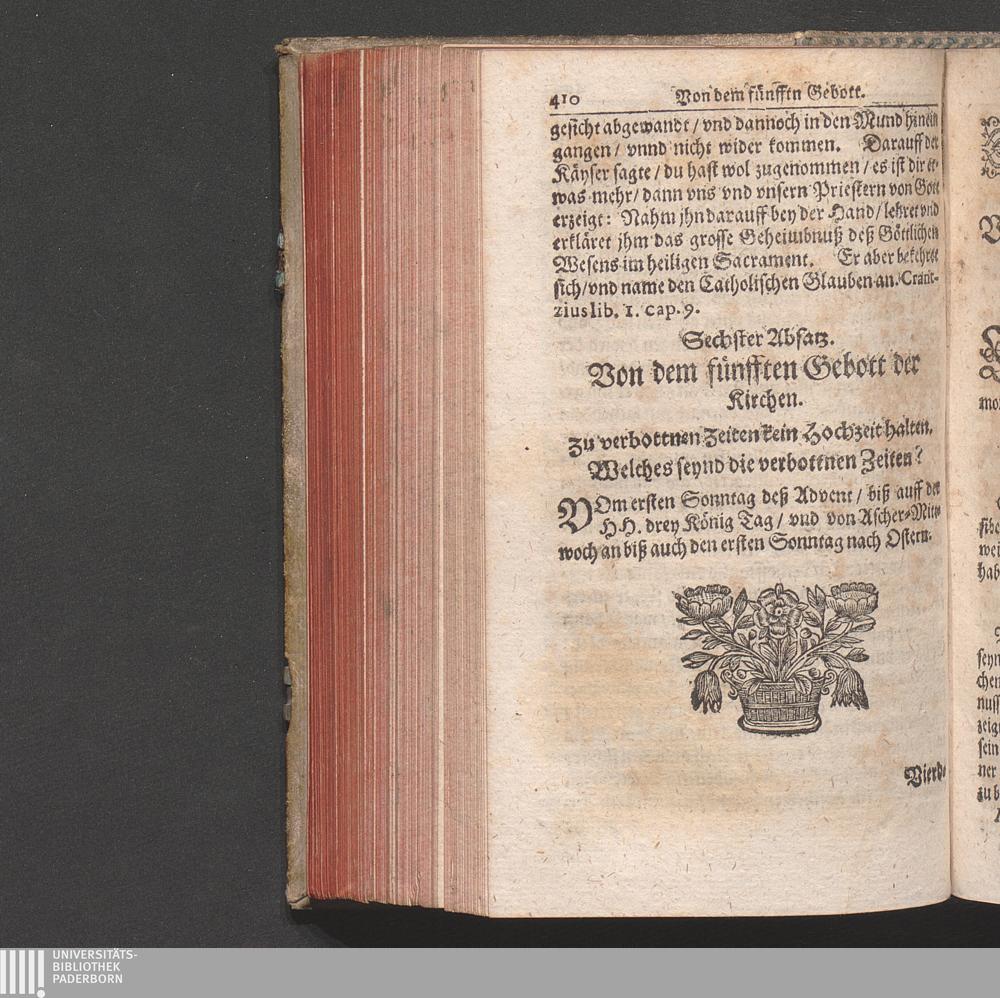 410 Von dem fünfftn Gebott.
gesicht abgewandt / vnd dannoch in den Mund hinein
gangen / vnnd nicht wider kommen. Darauff der
Käyser sagte / du hast wol zugenommen / es ist dir et-
was mehr / dann vns vnd vnsern Priestern von Gott
erzeigt: Nahm jhn darauff bey der Hand / lehret vnd
erkläret jhm das grosse Geheimbnuß deß Göttlichen
Wesens im heiligen Sacrament. Er aber bekehret
sich / vnd name den Catholischen Glauben an. Crant-
zius lib. 1. cap. 9.
Sechster Absatz.
Von dem fünfften Gebott der
Kirchen.
Zu verbottnen Zeiten kein Hochzeit halten.
Welches seynd die verbottnen Zeiten?
VOm ersten Sonntag deß Advent / biß auff der
HH. drey König Tag / vnd von Ascher-Mitt-
woch an biß auch den ersten Sonntag nach Ostern.
Vierd-
V
mor
sibe
wei
hab
seyn
chen
nuss
zeig
sein
ner
zu b
UNIVERSITÄTS-
BIBLIOTHEK
PADERBORN